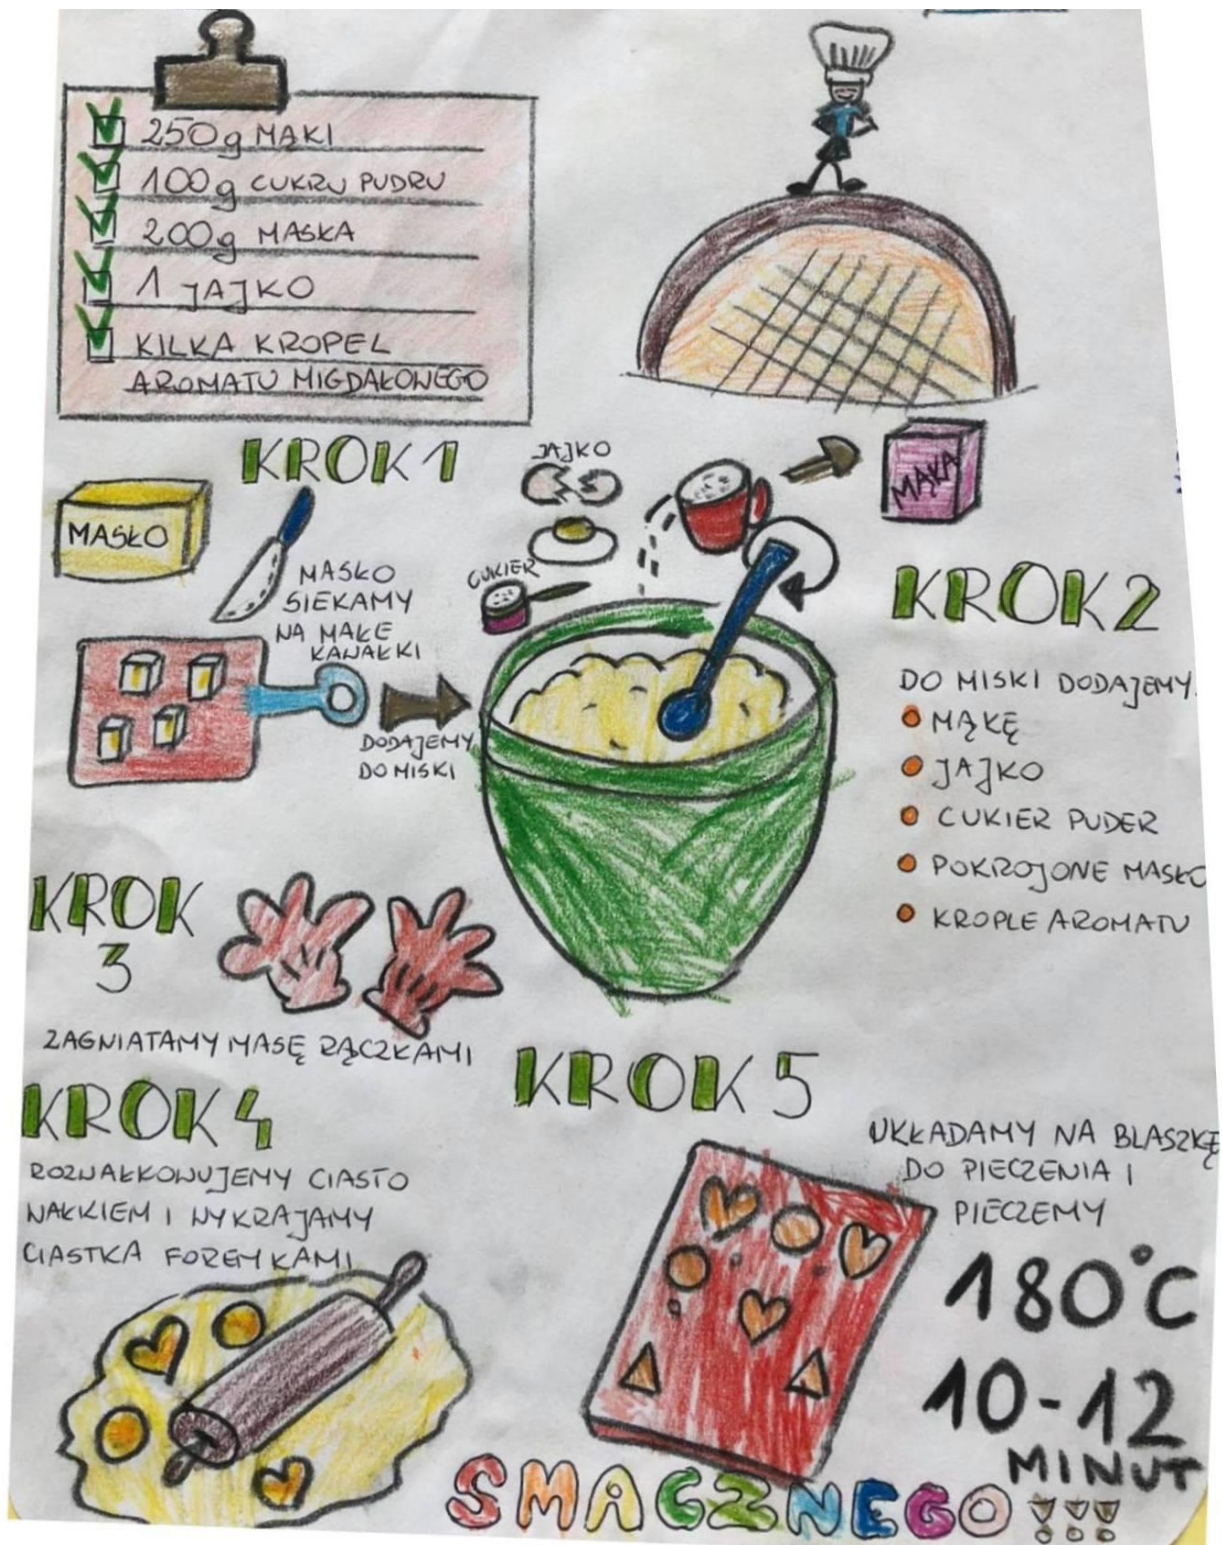 250g MĄKI
100g CUKRU PUDRU
200g MASŁA
1 JAJKO
KILKA KROPEL
AROMATU MIGDAŁOWEGO
KROK 1
MASŁO
MASŁO
SIEKAMY
NA MAŁE
KAWAŁKI
DODAJEMY
DO MISKI
JAJKO
CUKIER
MĄKA
KROK 2
DO MISKI DODAJEMY
MĄKĘ
JAJKO
CUKIER PUDER
POKROJONE MASŁO
KROPLE AROMATU
KROK
3
ZAGNIATAMY MASĘ RĄCZKAMI
KROK 4
ROZWAŁKOWUJEMY CIASTO
WAŁKIEM I WYKRAJAMY
CIASTKA FOREMKAMI
KROK 5
UKŁADAMY NA BLASZKĘ
DO PIECZENIA I
PIECZEMY
180°C
10-12
MINUT
SMACZNEGO !!!